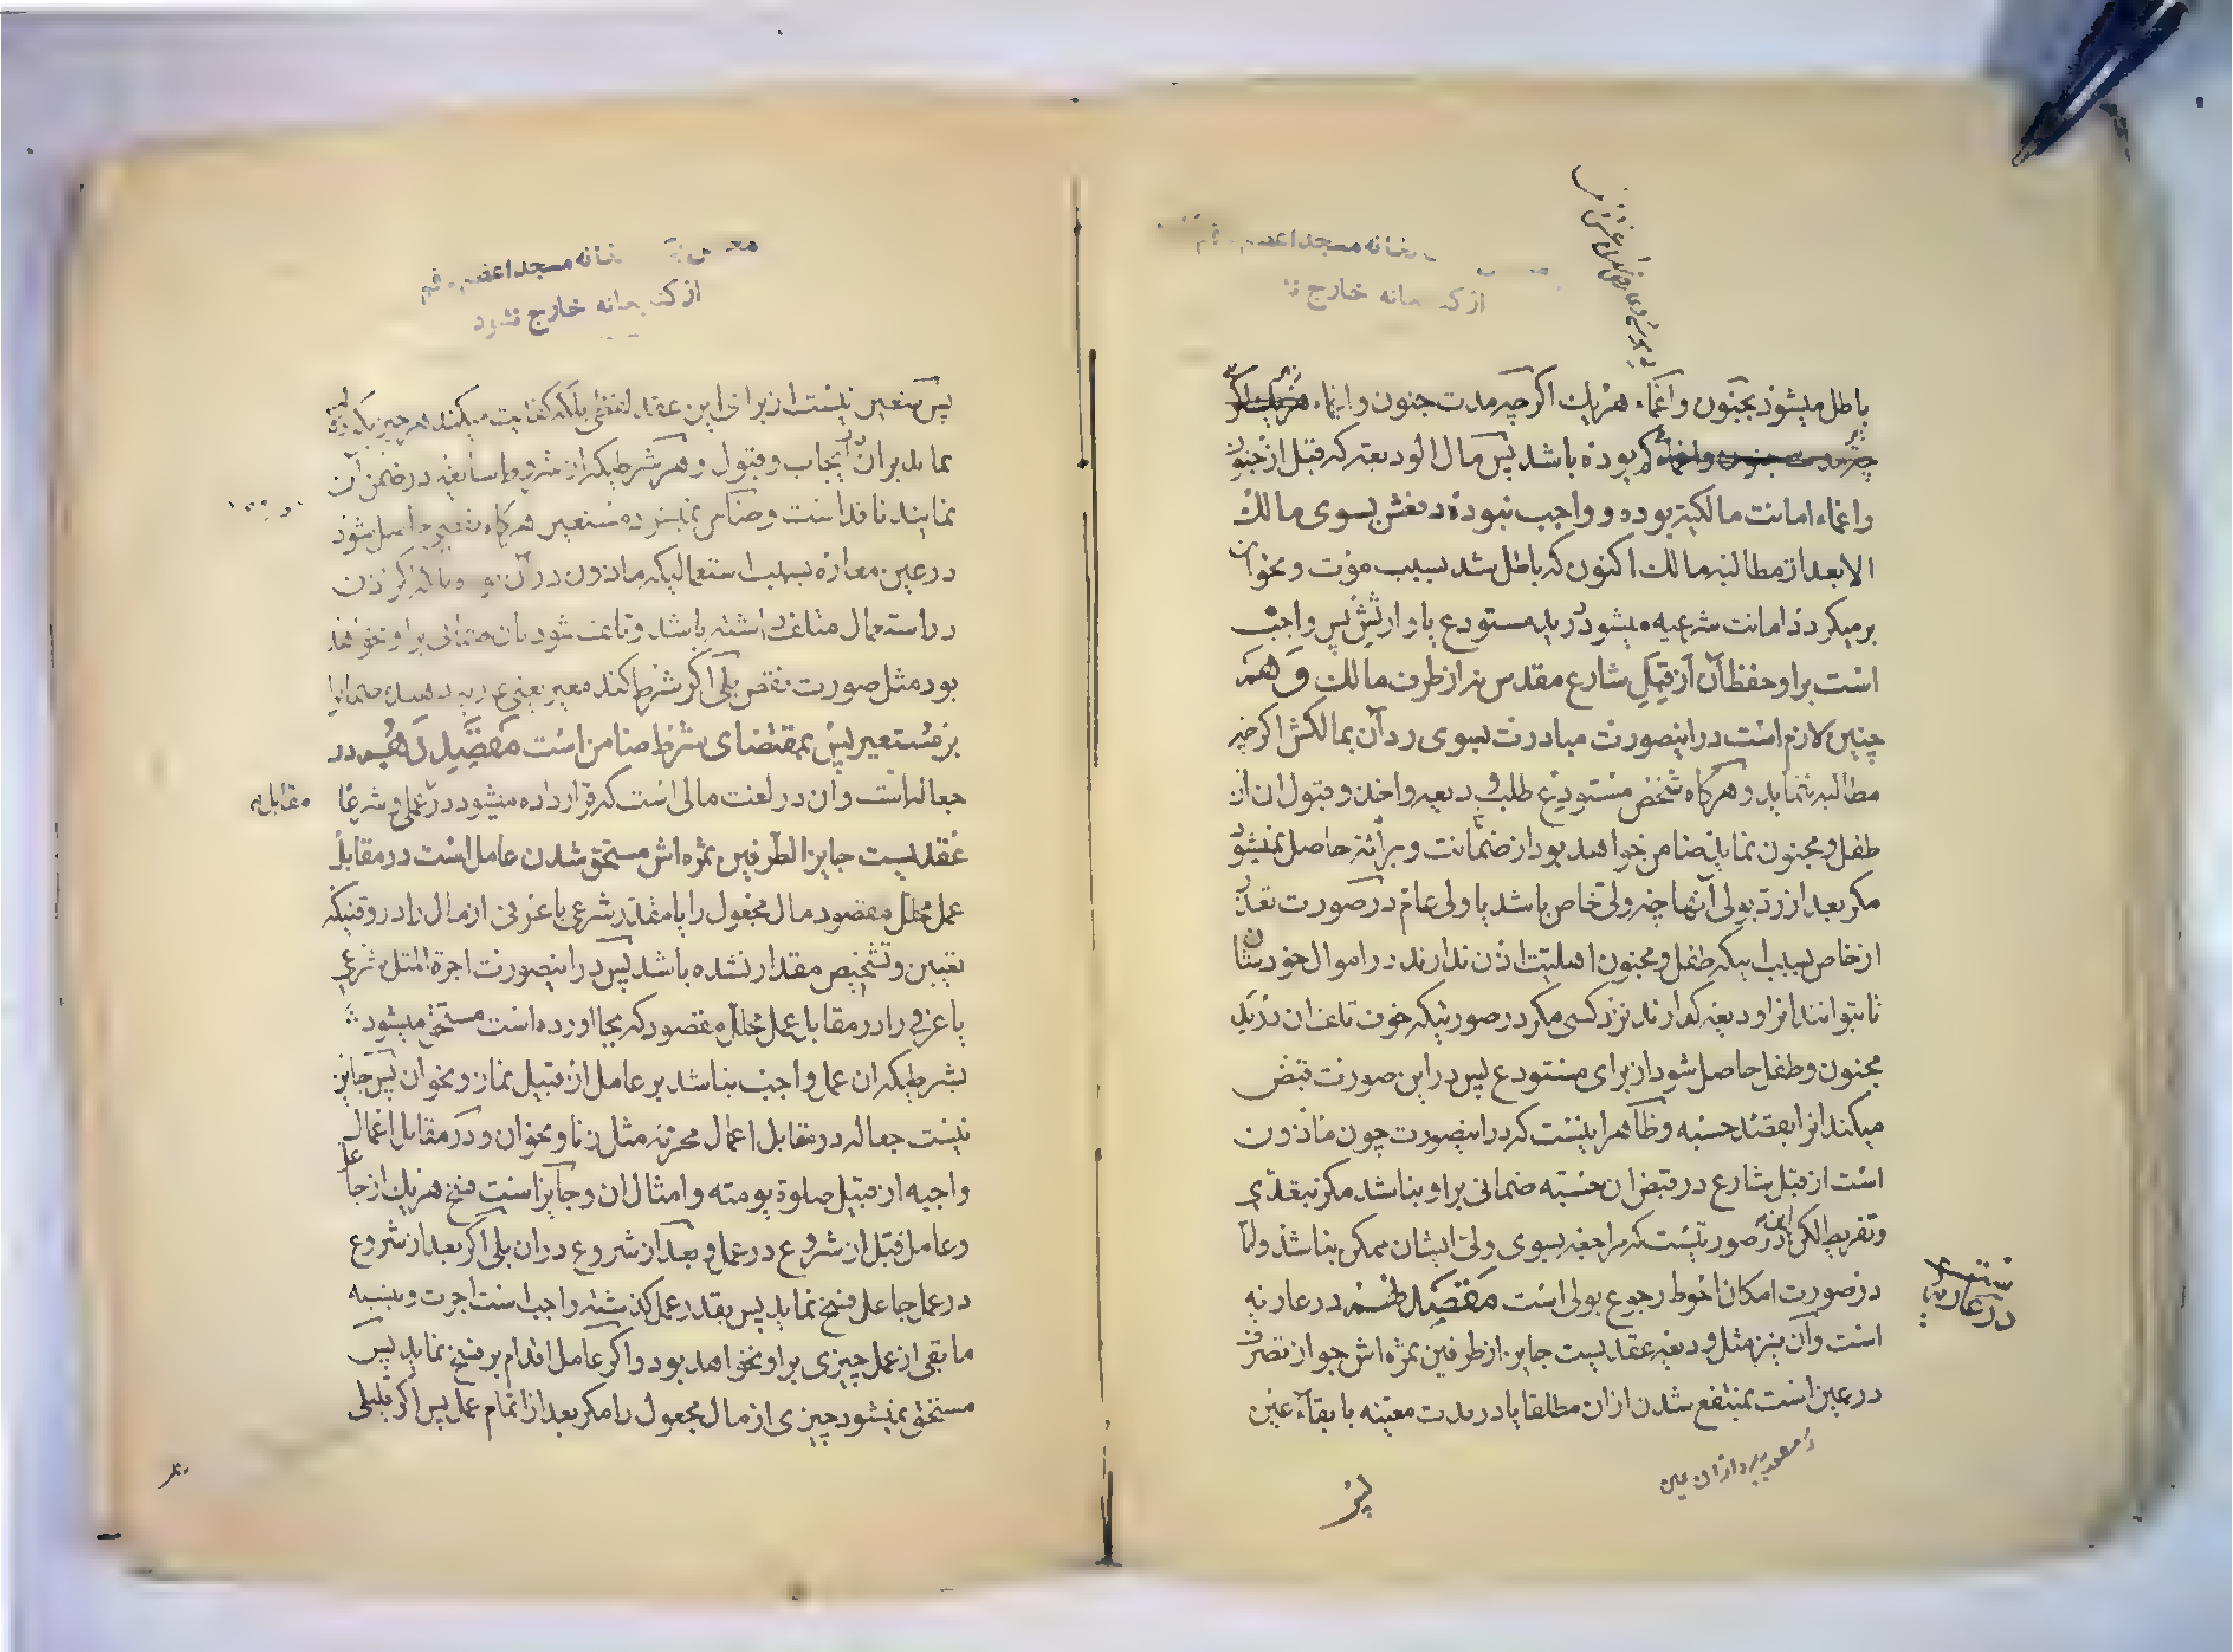 باطل میشود بجنون و اغماء هر یک اگر چه مدت جنون و اغماء
کم بوده باشد پس مال الودیعه که قبل از جنون
و اغماء امانت مالکیة بوده و واجب نبوده دفعش بسوی مالک
الا بعد از مطالبه مالک اکنون که باطل شد بسبب موت و نحو آن
برمیگردد امانت شرعیه میشود در ید مستودع یا وارثش پس واجب
است بر او حفظ آن از قبل شارع مقدس نه از طرف مالک و هم
چنین لازم است در اینصورت مبادرت بسوی رد آن بمالکش اگر چه
مطالبه ننماید و هر گاه شخص مستودع طلب ودیعه و اخذ و قبول ان از
طفل و مجنون نماید ضامن خواهد بود از ضمانت و برائة حاصل نمیشود
مگر بعد از رد بولی آنها چه ولی خاص باشد یا ولی عام در صورت تعذر
از خاص بسبب اینکه طفل و مجنون اهلیت اذن ندارند در اموال خودشان
تا بتوانند انرا ودیعه گذارند نزد کسی مگر در صورتیکه خوف تلف ان در ید
مجنون و طفل حاصل شود از برای مستودع پس در این صورت قبض
میکند انرا بقصد حسبه و ظاهر اینست که در اینصورت چون مأذون
است از قبل شارع در قبض ان حسبة ضمانی بر او نباشد مگر بتعدی
و تفریط لکن این در صورتیست که مراجعه بسوی ولی ایشان ممکن نباشد و اما
در صورت امکان احوط رجوع بولی است مقصد ششم در عاریه
است و آن نیز مثل ودیعه عقدیست جایز از طرفین ثمره اش جواز تصرف
در عین است بمنتفع شدن از ان مطلقا یا در مدت معینه با بقاء عین
در عاریه
پس
خانه مسجد اعظم - قم
خارج نشود
پس متعین نیست از برای این عقد لفظی بلکه کفایت میکند هر چیزیکه
نماید بر ان ایجاب و قبول و هر شرطیکه از شروط سایغه در ضمن آن
نمایند نافذ است و ضامن نمیشود مستعیر هر گاه نقص حاصل شود
در عین معاره بسبب استعمالیکه ماذون در آن
در استعمال متلف داشته باشد و تلف شود بان ضمانی بر او نخواهد
بود مثل صورت نقص بلی اگر شرط کند معیر یعنی عاریه دهنده ضمانرا
بر مستعیر پس بمقتضای شرط ضامن است مقصد دهم در
جعاله است و ان در لغت مالی است که قرار داده میشود در عملی و شرعا
مقابله
عقدیست جایز الطرفین ثمره اش مستحق شدن عامل است در مقابل
عمل محلل مقصود مال مجعول را یا مقدر شرعی یا عرفی از مال را در وقتیکه
تعیین و تشخیص مقدار نشده باشد پس در اینصورت اجرة المثل شرعی
یا عرفی را در مقابل عمل محلل مقصود که بجا اورده است مستحق میشود
بشرطیکه ان عمل واجب نباشد بر عامل از قبیل نماز و نحو ان پس جایز
نیست جعاله در مقابل اعمال محرمه مثل زنا و نحو ان و در مقابل اعمال
واجبه از قبیل صلوة یومیه و امثال ان و جایز است فسخ هر یک از جاعل
و عامل قبل از شروع در عمل و بعد از شروع در ان بلی اگر بعد از شروع
در عمل جاعل فسخ نماید پس بقدر عمل گذشته واجب است اجرت و بنسبه
ما بقی از عمل چیزی بر او نخواهد بود و اگر عامل اقدام بر فسخ نماید پس
مستحق نمیشود چیزی از مال مجعول را مگر بعد از اتمام عمل پس اگر